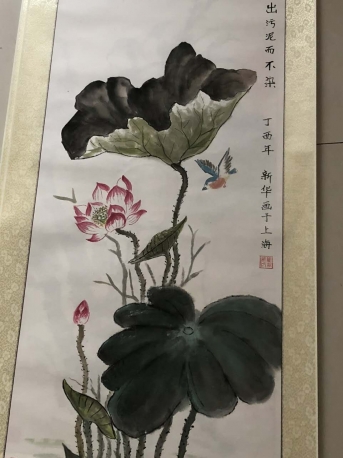 出污泥而不染
丁酉年 新华画于上海